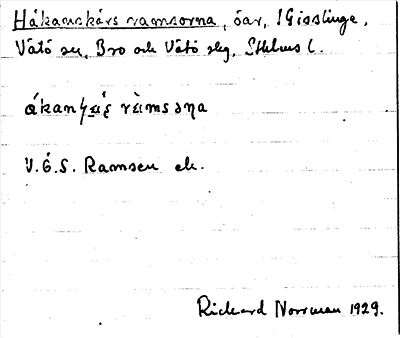 Håkanskärs ramsorna, öar, 1 Gisslinge,
Vätö sn, Bro och Vätö skg, Sthlms l.
V.G.S. Ramsen etc.
Richard Norrman 1929.